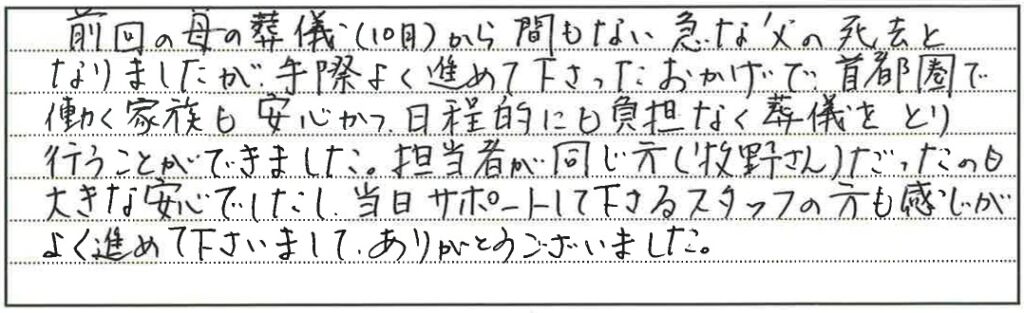 前回の母の葬儀(10月)から間もない急な父の死去と
なりましたが、手際よく進めて下さったおかげで、首都圏で
働く家族も安心かつ、日程的にも負担なく葬儀をとり
行うことができました。担当者が同じ方(牧野さん)だったのも
大きな安心でしたし、当日サポートして下さるスタッフの方も感じが
よく進めて下さいまして、ありがとうございました。